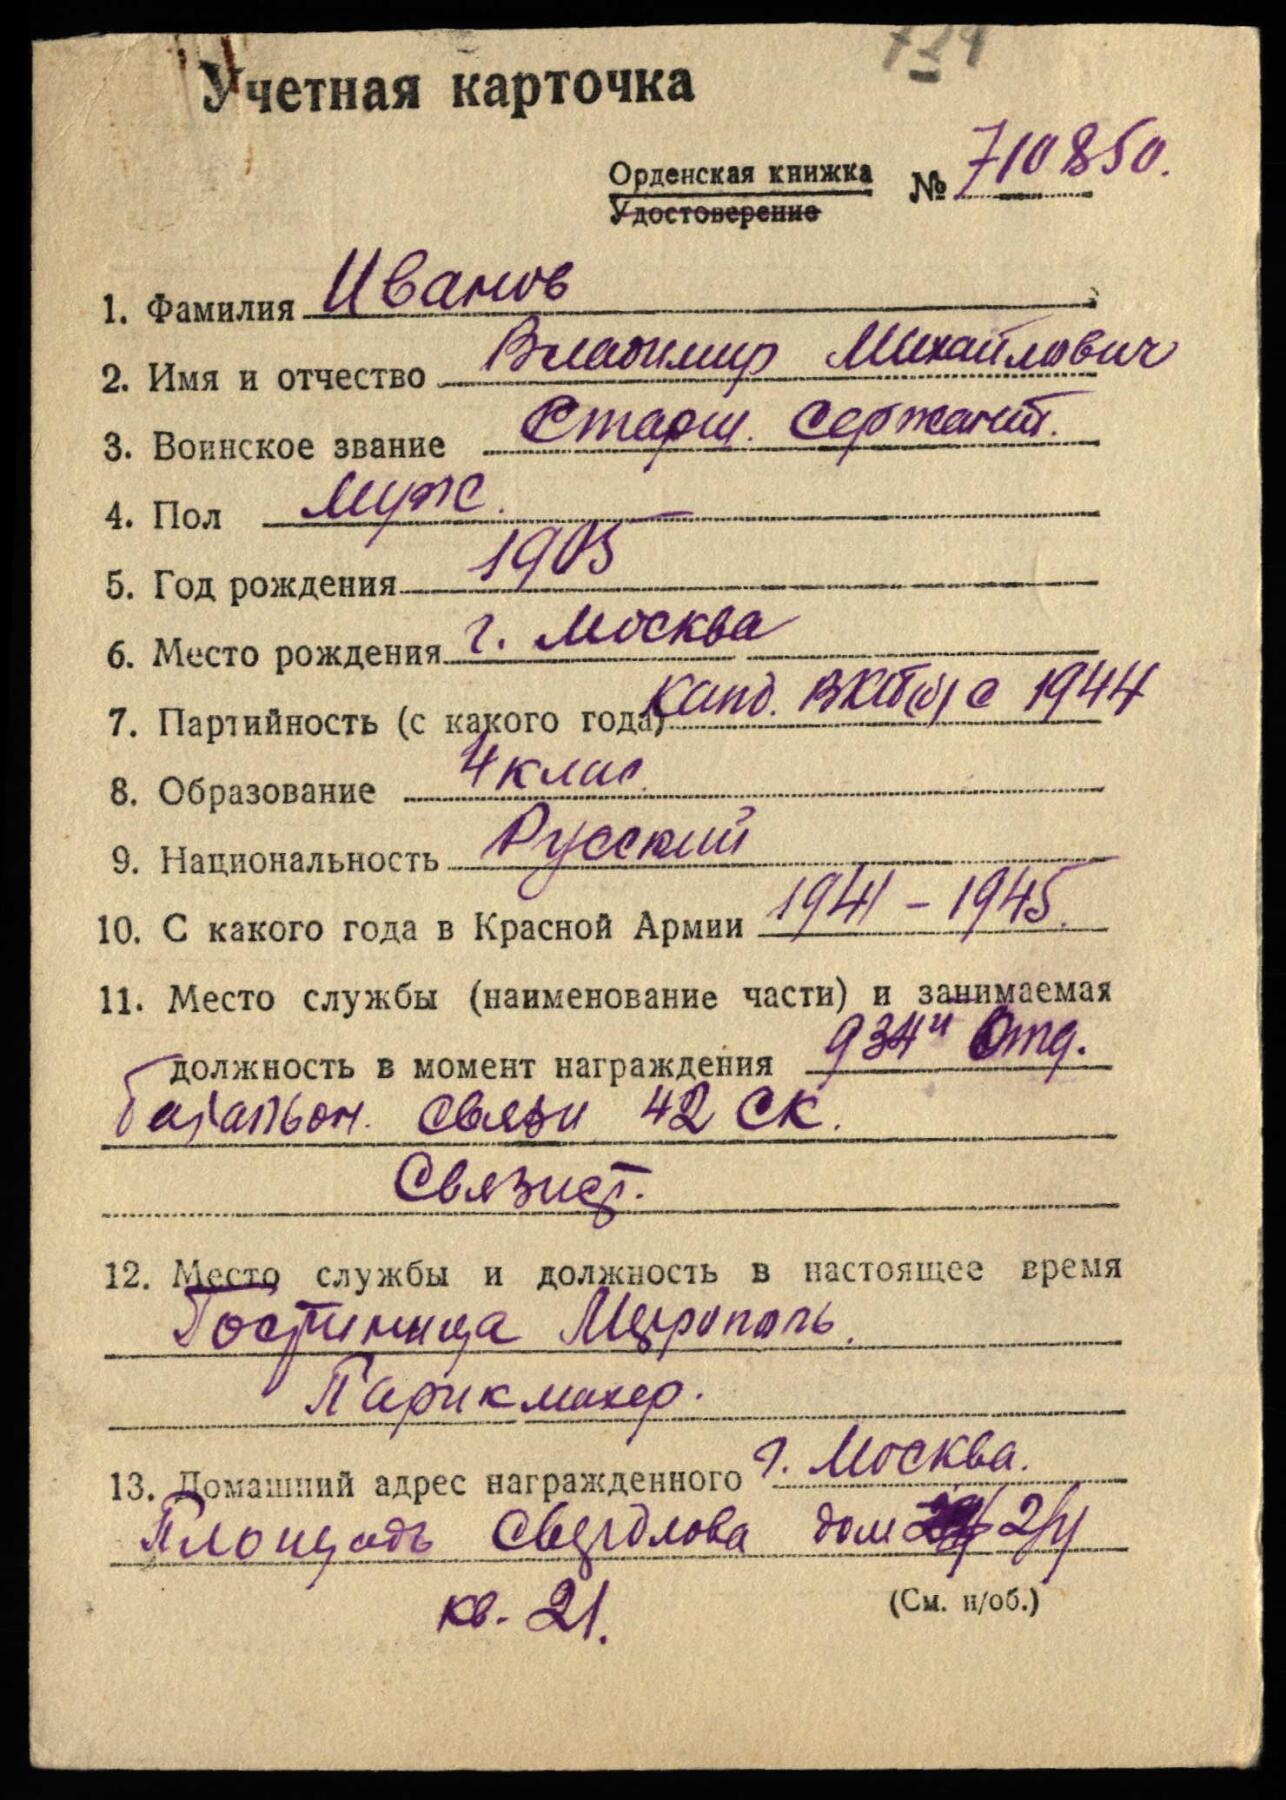 Учетная карточка
Орденская книжка
Удостоверение
№ 710850.
1. Фамилия Иванов
2. Имя и отчество Владимир Михайлович
3. Воинское звание Старш. Сержант.
4. Пол Муж.
5. Год рождения 1905
6. Место рождения г. Москва
7. Партийность (с какого года) канд. ВКП(б) с 1944
8. Образование 4 клас.
9. Национальность Русский
10. С какого года в Красной Армии 1941 - 1945.
11. Место службы (наименование части) и занимаемая
должность в момент награждения 934й Отд.
баталъон. связи 42 СК.
Связист.
12. Место службы и должность в настоящее время
Гостиница Метрополь.
Парикмахер.
13. Домашний адрес награжденного г. Москва.
Площадь Свердлова дом 2/4
(См. н/об.)
кв. 21.